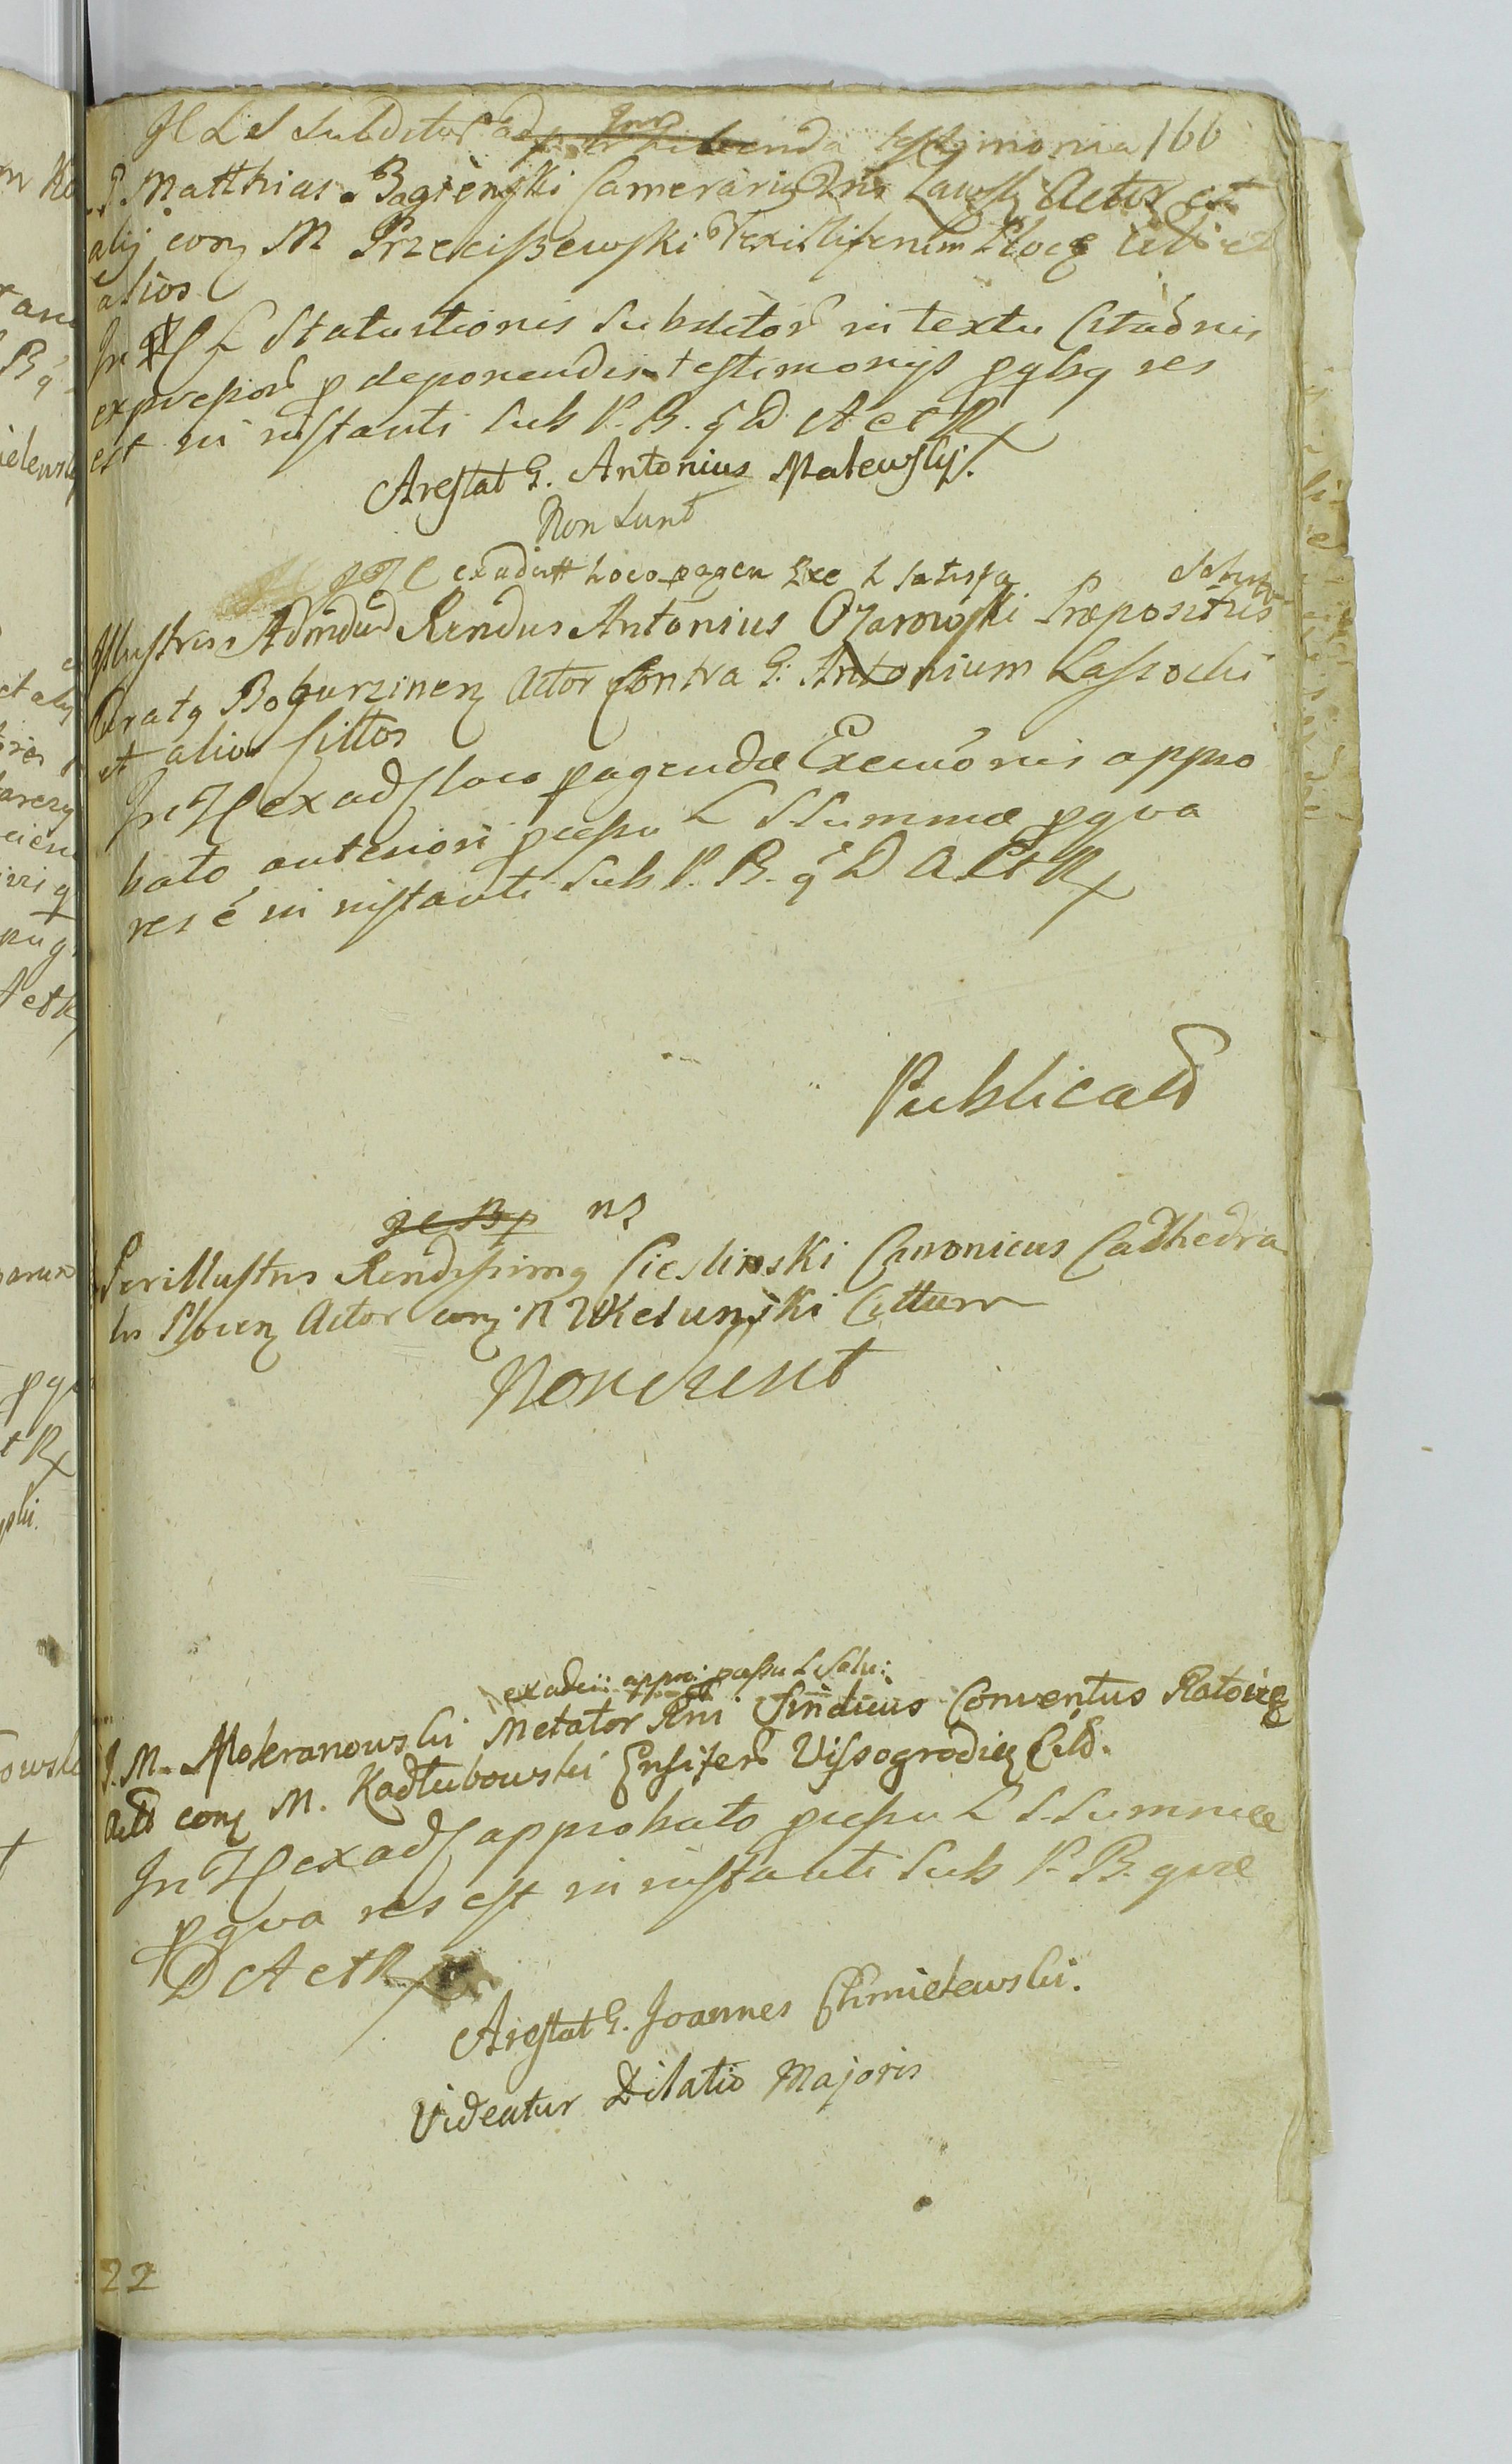 H L S Subditor ad perhibenda testimonia 166
P. Matthias Bagieński Camerarius Lawsk Actor et
alij con M Przeciszewski Vexilliferum Ploc Citt et
alios
In H L Statuitionis Subditor in textu Citaonis
expressor p deponendis testimonijs pqbq res
est in instanti Sub P. B. q D A et R
Arestat G. Antonius Malewsky.
Non Sunt
H ex adcitt Loco pagen Exe L Satisfa
Illustris Admdud Rendus Antonius Ozarowski Præpositus
Curatq Bogurzinen Actor Contra G: Antonium Lassocki
et alios Cittos
In H ex adC loco pagendæ Execuonis appro
bato anteriori pcessu L S Summæ pqva
res é in instanti Sub P. B. q D A et R
Publicad
ns
Perillustris Rendissimq Cieslinski Canonicus Cadhedra
lis Plocen Actor con: N Wkelunski Cittum
Non erunt
ex adcii appro: pcessu L Solu:
G. M. Mokranowski Metator Rni Sindicus Conventus Ratoien
Actd con M. Kadłubowski Ensiferd Vissogrodien Citd.
In H ex adC approbato pcessu L S Summæ
pqva res est in instanti Sub P. B. quæ
D A et R
Arestat G. Joannes Chmielewski.
Videatur Dilatio Majoris
22